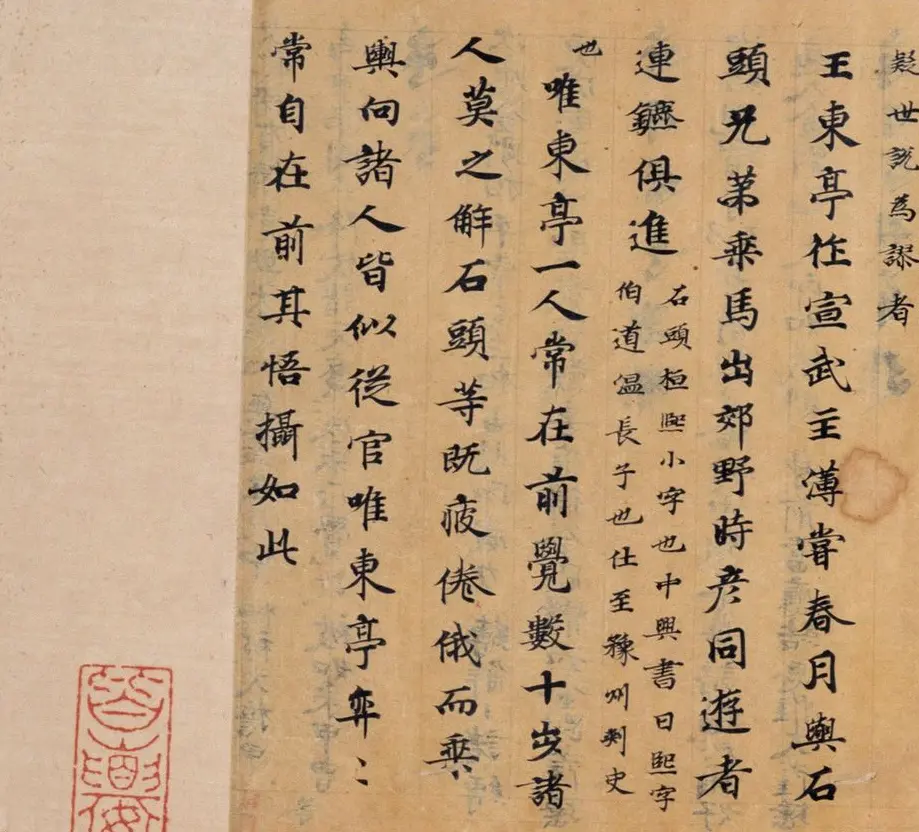 疑世説為謬者
王東亭作宣武主薄嘗春月與石
頭兄苐乗馬出郊野時彦同遊者
連鑣俱進
石頭桓熙小字也中興書曰熙字
伯道温長子也仕至豫州刾史
也
唯東亭一人常在前覺數十歩諸
人莫之解石頭等既疲倦俄而乗
輿向諸人皆似從官唯東亭弈〻
常自在前其悟攝如此